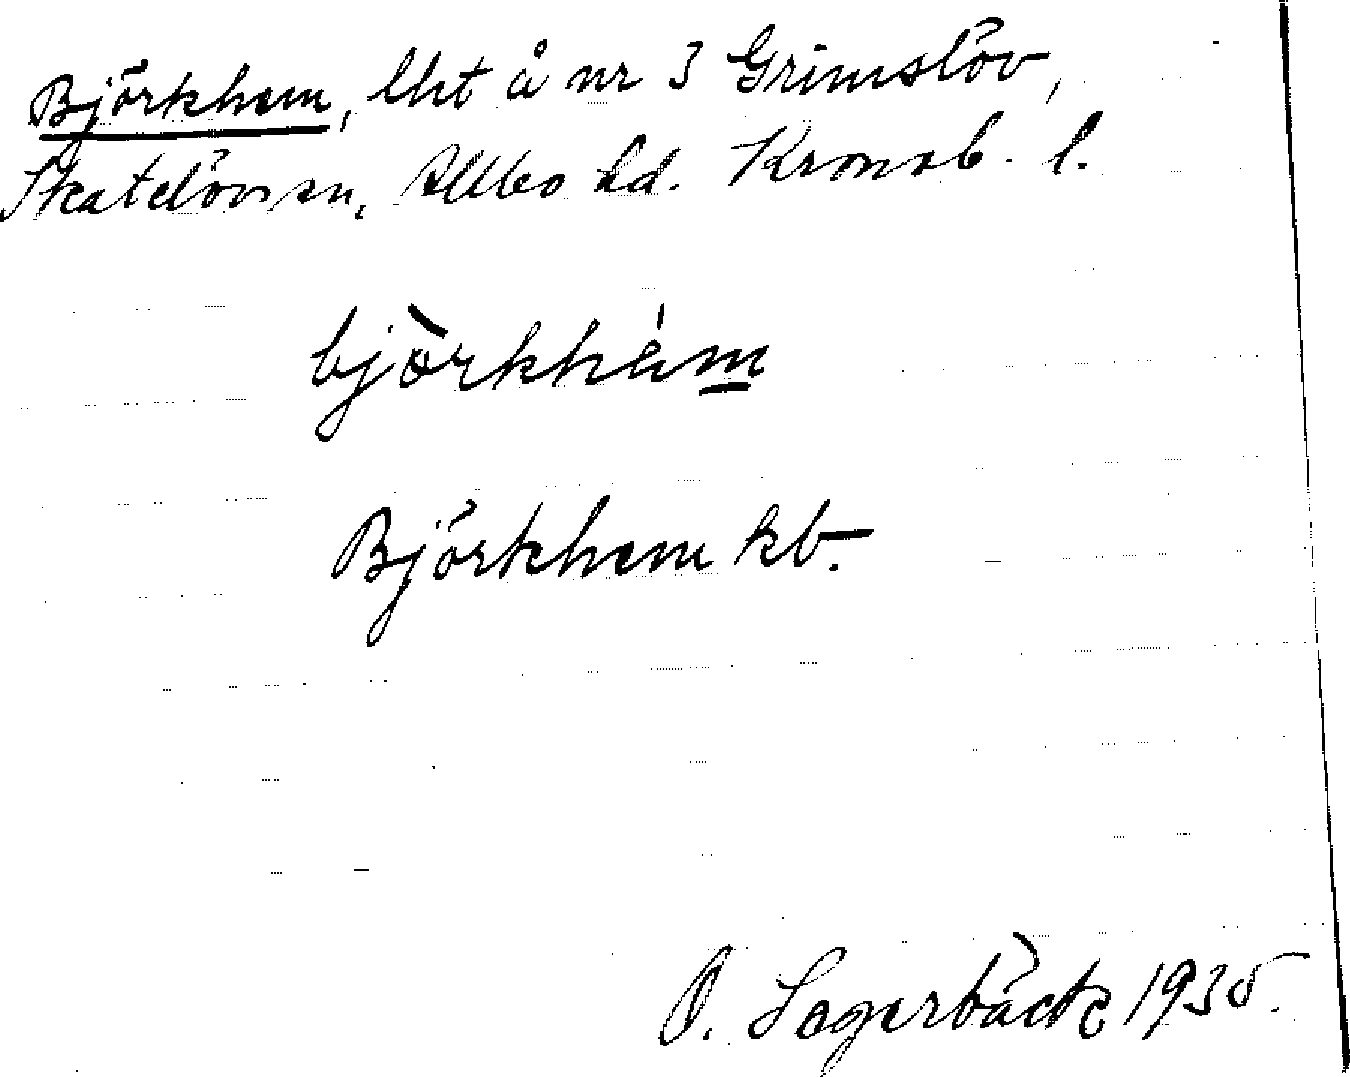 Björkhem, lht å nr 3 Grimslöv,
Skatelövs sn, Allbo hd. Kronob. l.
björkhäm
Björkhem kb.
O. Lagerbäck 1935.